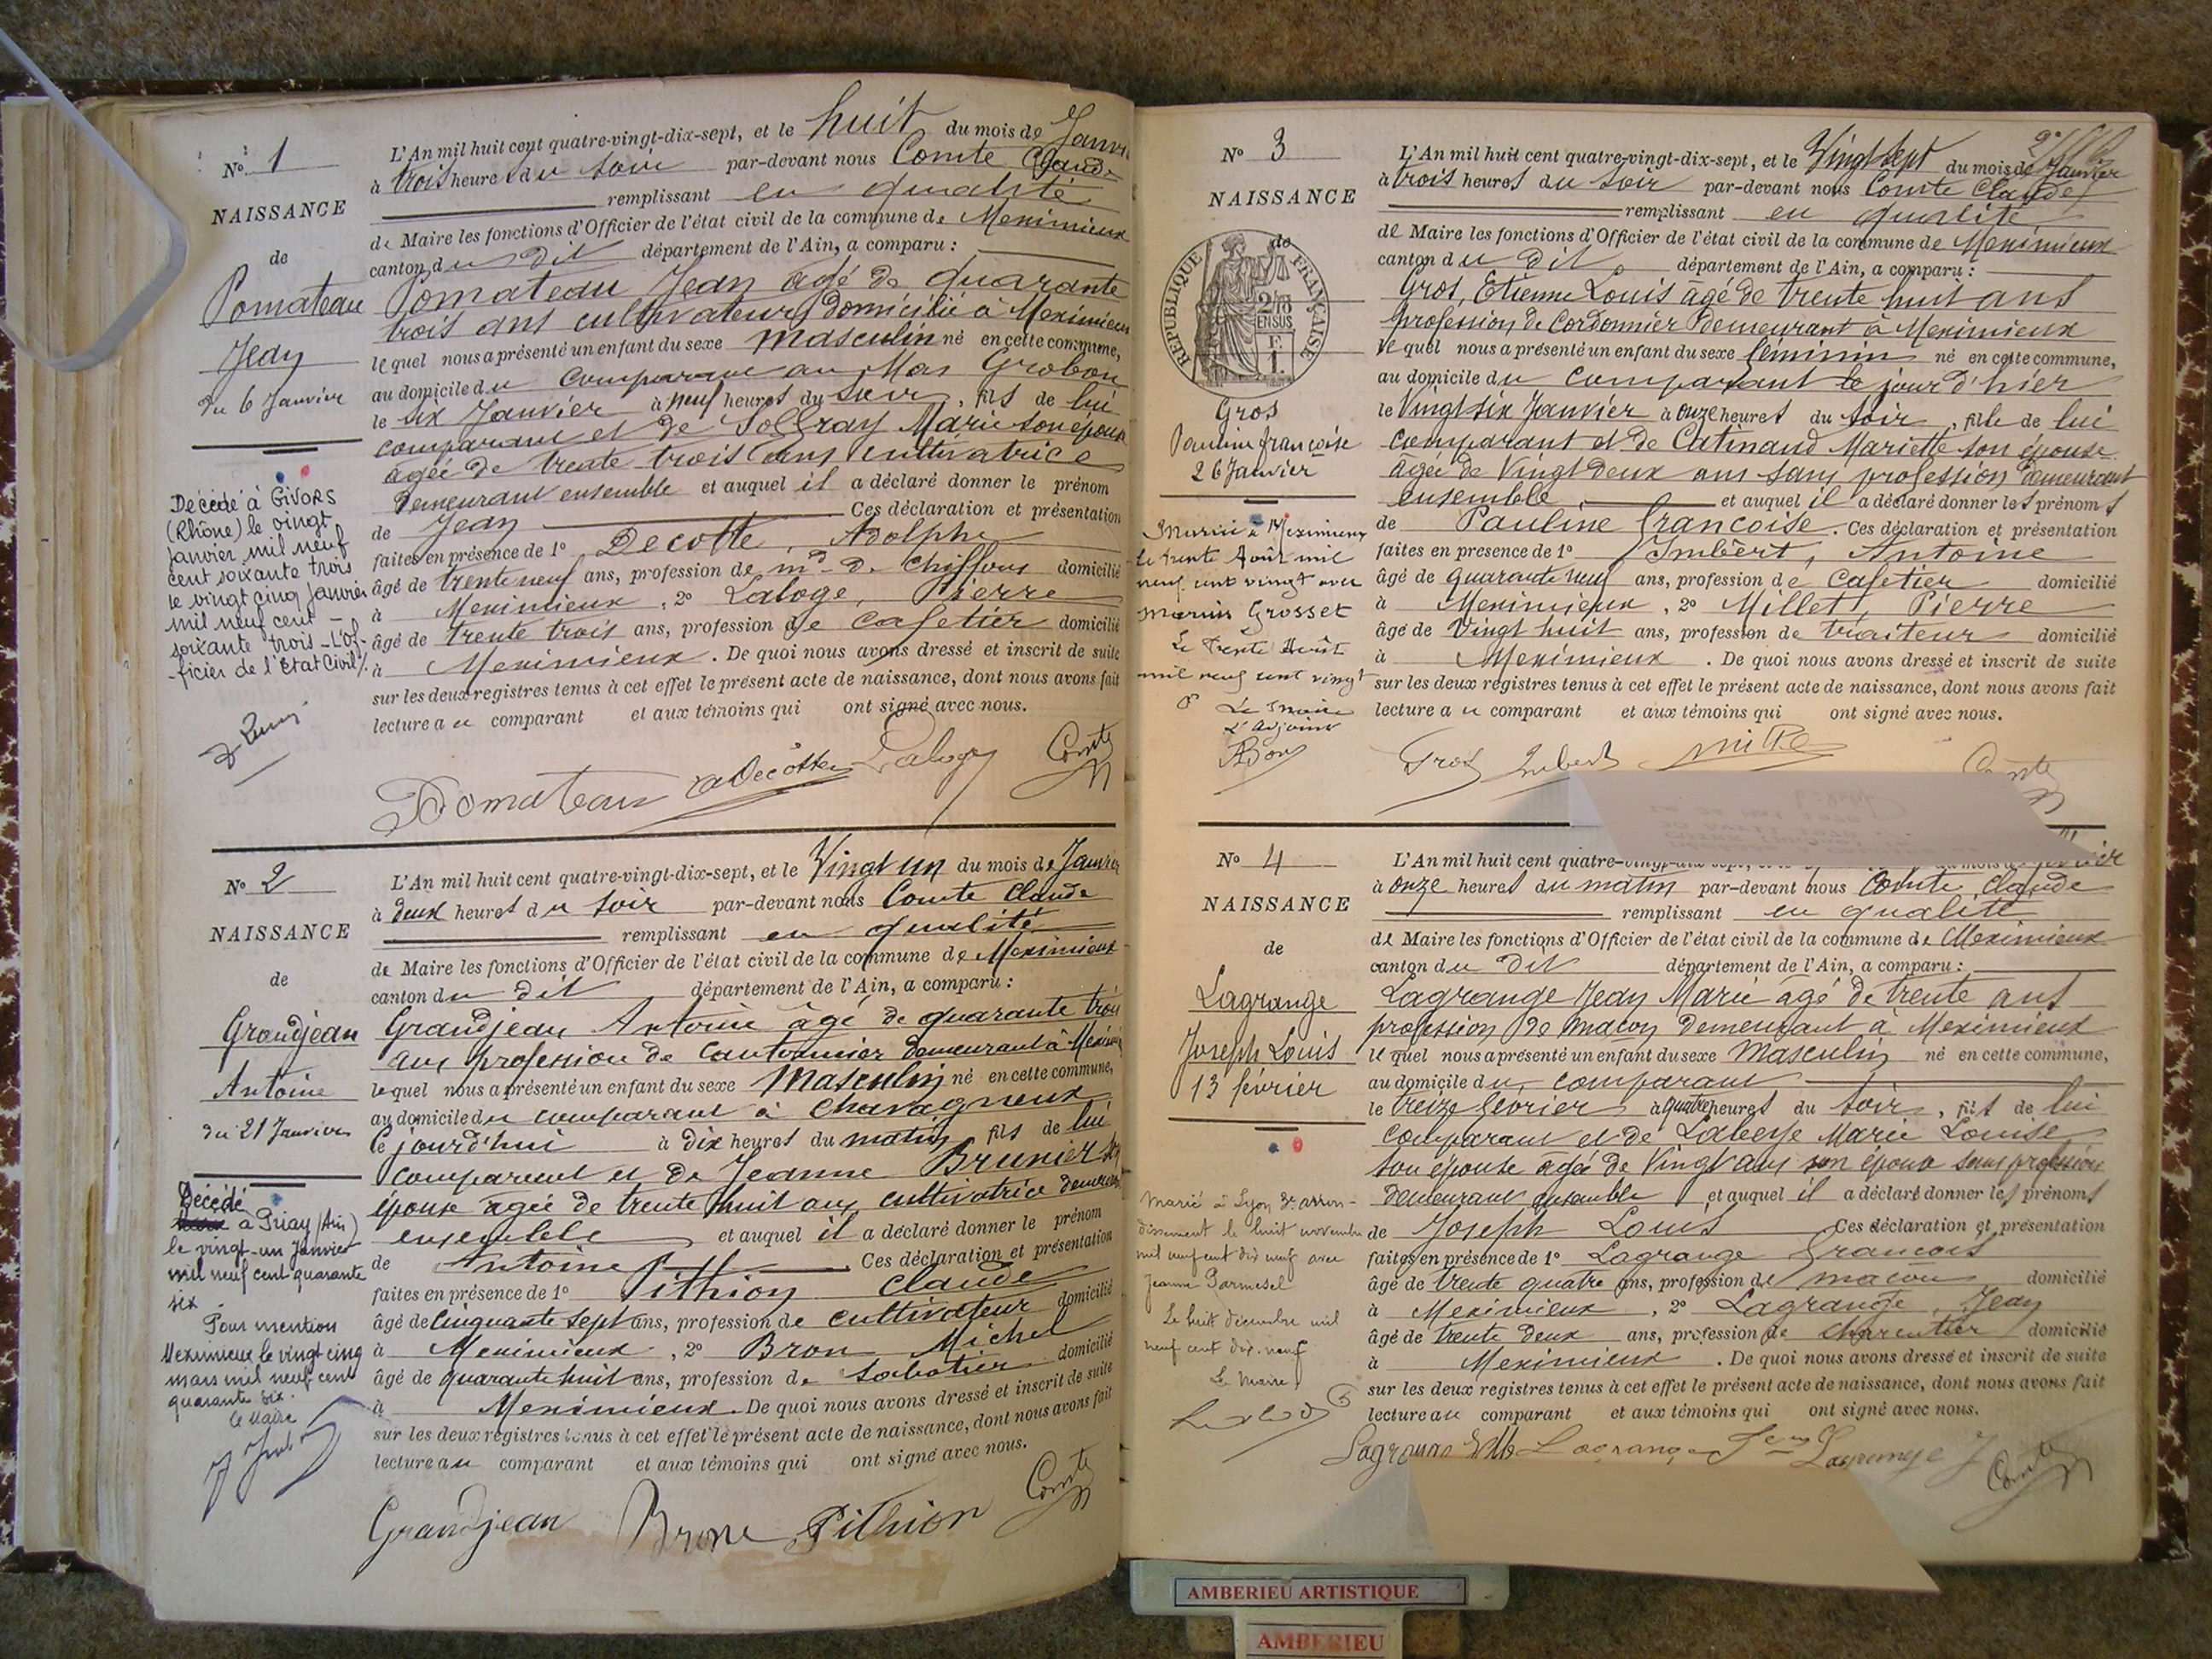 N° 1
NAISSANCE
de
Pomateau
Jean
du 6 Janvier
Décédé à GIVORS
(Rhône) le vingt
janvier mil neuf
cent soixante trois
le vingt cinq janvier
mil neuf cent
soixante trois - L'Of-
-ficier de l'Etat Civil
L'An mil huit cent quatre-vingt-dix-sept, et le huit du mois de Janvi
à trois heures du soir par-devant nous Comte Claude
remplissant en qualité
de Maire les fonctions d'Officier de l'état civil de la commune de Meximieux
canton du dit département de l'Ain, a comparu :
Pomateau Jean âgé de quarante
trois ans cultivateur domicilié à Meximieux
lequel nous a présenté un enfant du sexe masculin né en cette commune,
au domicile du comparant au Mas Grobon
le six Janvier à neuf heures du soir, fils de lui
comparant et de Marie son épouse
agée de trente trois ans cultivatrice
demeurant ensemble et auquel il a déclaré donner le prénom
de Jean Ces déclaration et présentation
faites en présence de 1° Decotte, Adolphe
âgé de trente neuf ans, profession de md de Chiffons domicilié
à Meximieux, 2° Laloge, Pierre
âgé de trente trois ans, profession de Cafetier domicilié
à Meximieux. De quoi nous avons dressé et inscrit de suite
sur les deux registres tenus à cet effet le présent acte de naissance, dont nous avons fait
lecture au comparant et aux témoins qui ont signé avec nous.
Pomateau aDecotte Laloge Comte
N° 2
NAISSANCE
de
Grandjean
Antoine
du 21 Janvier
Décédé
à Priay (Ain)
le vingt-un Janvier
mil neuf cent quarante
six
Pour mention
Meximieux le vingt cinq
mars mil neuf cent
quarante six.
Le Maire
L'An mil huit cent quatre-vingt-dix-sept, et le Vingt un du mois de Janvier
à deux heures du soir par-devant nous Comte Claude
remplissant en qualité
de Maire les fonctions d'Officier de l'état civil de la commune de Meximieux
canton du dit département de l'Ain, a comparu :
Grandjean Antoine âgé de quarante trois
ans profession de Cantonnier demeurant à Mexim
lequel nous a présenté un enfant du sexe Masculin né en cette commune,
au domicile du comparant à Chavagneux
le jourd'hui à dix heures du matin, fils de lui
comparant et de Jeanne Brunier
épouse agée de trente huit ans cultivatrice demeurant
ensemble et auquel il a déclaré donner le prénom
de Antoine Ces déclaration et présentation
faites en présence de 1° Pithion Claude
âgé de Cinquante sept ans, profession de cultivateur domicilié
à Meximieux, 2° Bron Michel
âgé de quarante huit ans, profession de Sabotier domicilié
à Meximieux. De quoi nous avons dressé et inscrit de suite
sur les deux registres tenus à cet effet le présent acte de naissance, dont nous avons fait
lecture au comparant et aux témoins qui ont signé avec nous.
Grandjean Brone Pithion Comte
N° 3
NAISSANCE
de
REPUBLIQUE FRANÇAISE
2/10
EN SUS
F.
1.
Gros
Pauline françoise
26 Janvier
Marié à Meximieux
le trente Août mil
neuf cent vingt avec
Marius Grosset
Le Trente Août
mil neuf cent vingt
Le Maire
L'Adjoint
L'An mil huit cent quatre-vingt-dix-sept, et le Vingt sept du mois de Janvier
à trois heures du soir par-devant nous Comte Claude
remplissant en qualité
de Maire les fonctions d'Officier de l'état civil de la commune de Meximieux
canton du dit département de l'Ain, a comparu :
Gros, Etienne Louis âgé de trente huit ans
profession de Cordonnier demeurant à Meximieux
le quel nous a présenté un enfant du sexe féminin né en cette commune,
au domicile du comparant le jour d'hier
le Vingt six Janvier à onze heures du soir, fille de lui
comparant et de Catinaud Mariette son épouse
âgée de Vingt deux ans sans profession demeurant
ensemble et auquel il a déclaré donner les prénoms
de Pauline Francoise. Ces déclaration et présentation
faites en présence de 1° Imbert, Antoine
âgé de quarante neuf ans, profession de Cafetier domicilié
à Meximieux, 2° Millet, Pierre
âgé de Vingt huit ans, profession de traiteur domicilié
à Meximieux. De quoi nous avons dressé et inscrit de suite
sur les deux registres tenus à cet effet le présent acte de naissance, dont nous avons fait
lecture au comparant et aux témoins qui ont signé avec nous.
Gros Imbert
N° 4
NAISSANCE
de
Lagrange
Joseph Louis
13 février
Marié à Lyon arron-
dissement le huit novembre
mil neuf cent dix neuf avec
Jeanne Parmesel
Le huit décembre mil
neuf cent dix-neuf
Le Maire
L'An mil huit cent quatre-
à onze heures du matin par-devant nous Comte Claude
remplissant en qualité
de Maire les fonctions d'Officier de l'état civil de la commune de Meximieux
canton du dit département de l'Ain, a comparu :
Lagrange Jean Marie âgé de trente ans
profession de maçon demeurant à Meximieux
le quel nous a présenté un enfant du sexe Masculin né en cette commune,
au domicile du comparant
le treize février à quatre heures du soir, fils de lui
comparant et de Marie Louise
son épouse âgée de Vingt ans son épouse sans profession
demeurant ensemble et auquel il a déclaré donner les prénoms
de Joseph Louis Ces déclaration et présentation
faites en présence de 1° Lagrange Francois
âgé de trente quatre ans, profession de macon domicilié
à Meximieux, 2° Lagrange, Jean
âgé de trente deux ans, profession de charcutier domicilié
à Meximieux. De quoi nous avons dressé et inscrit de suite
sur les deux registres tenus à cet effet le présent acte de naissance, dont nous avons fait
lecture au comparant et aux témoins qui ont signé avec nous.
Lagrange Lagrange Lagrange J Comte
AMBERIEU ARTISTIQUE
AMBERIEU